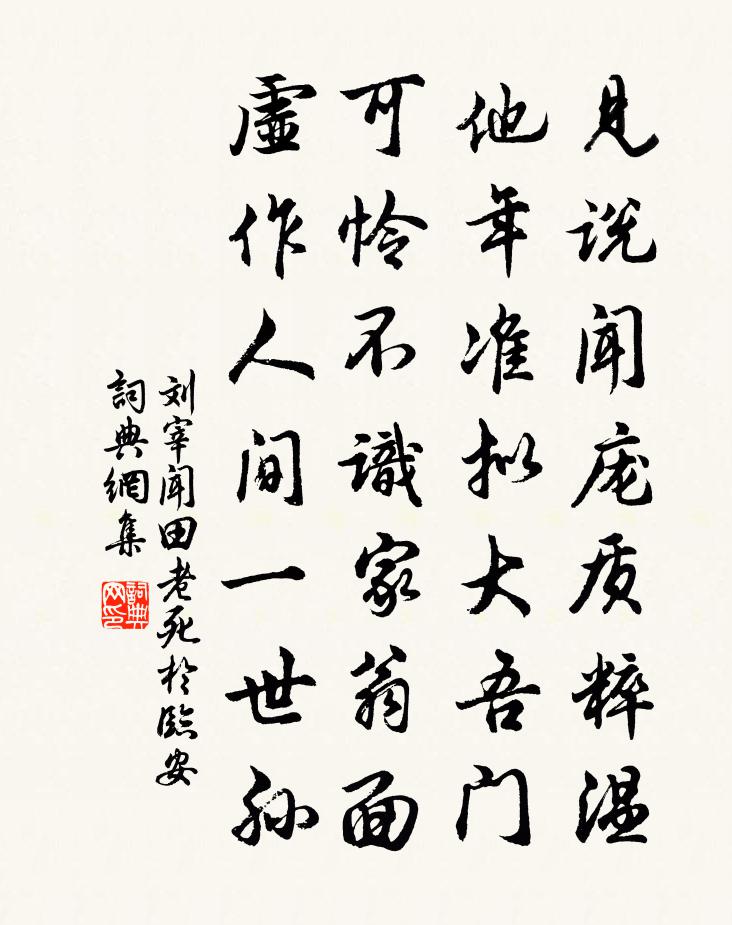 见说闻庞质粹温
他年准拟大吾门
可怜不识家翁面
虚作人间一世孙
刘宰闻田老死於臨安
詞典網集
詞典网印